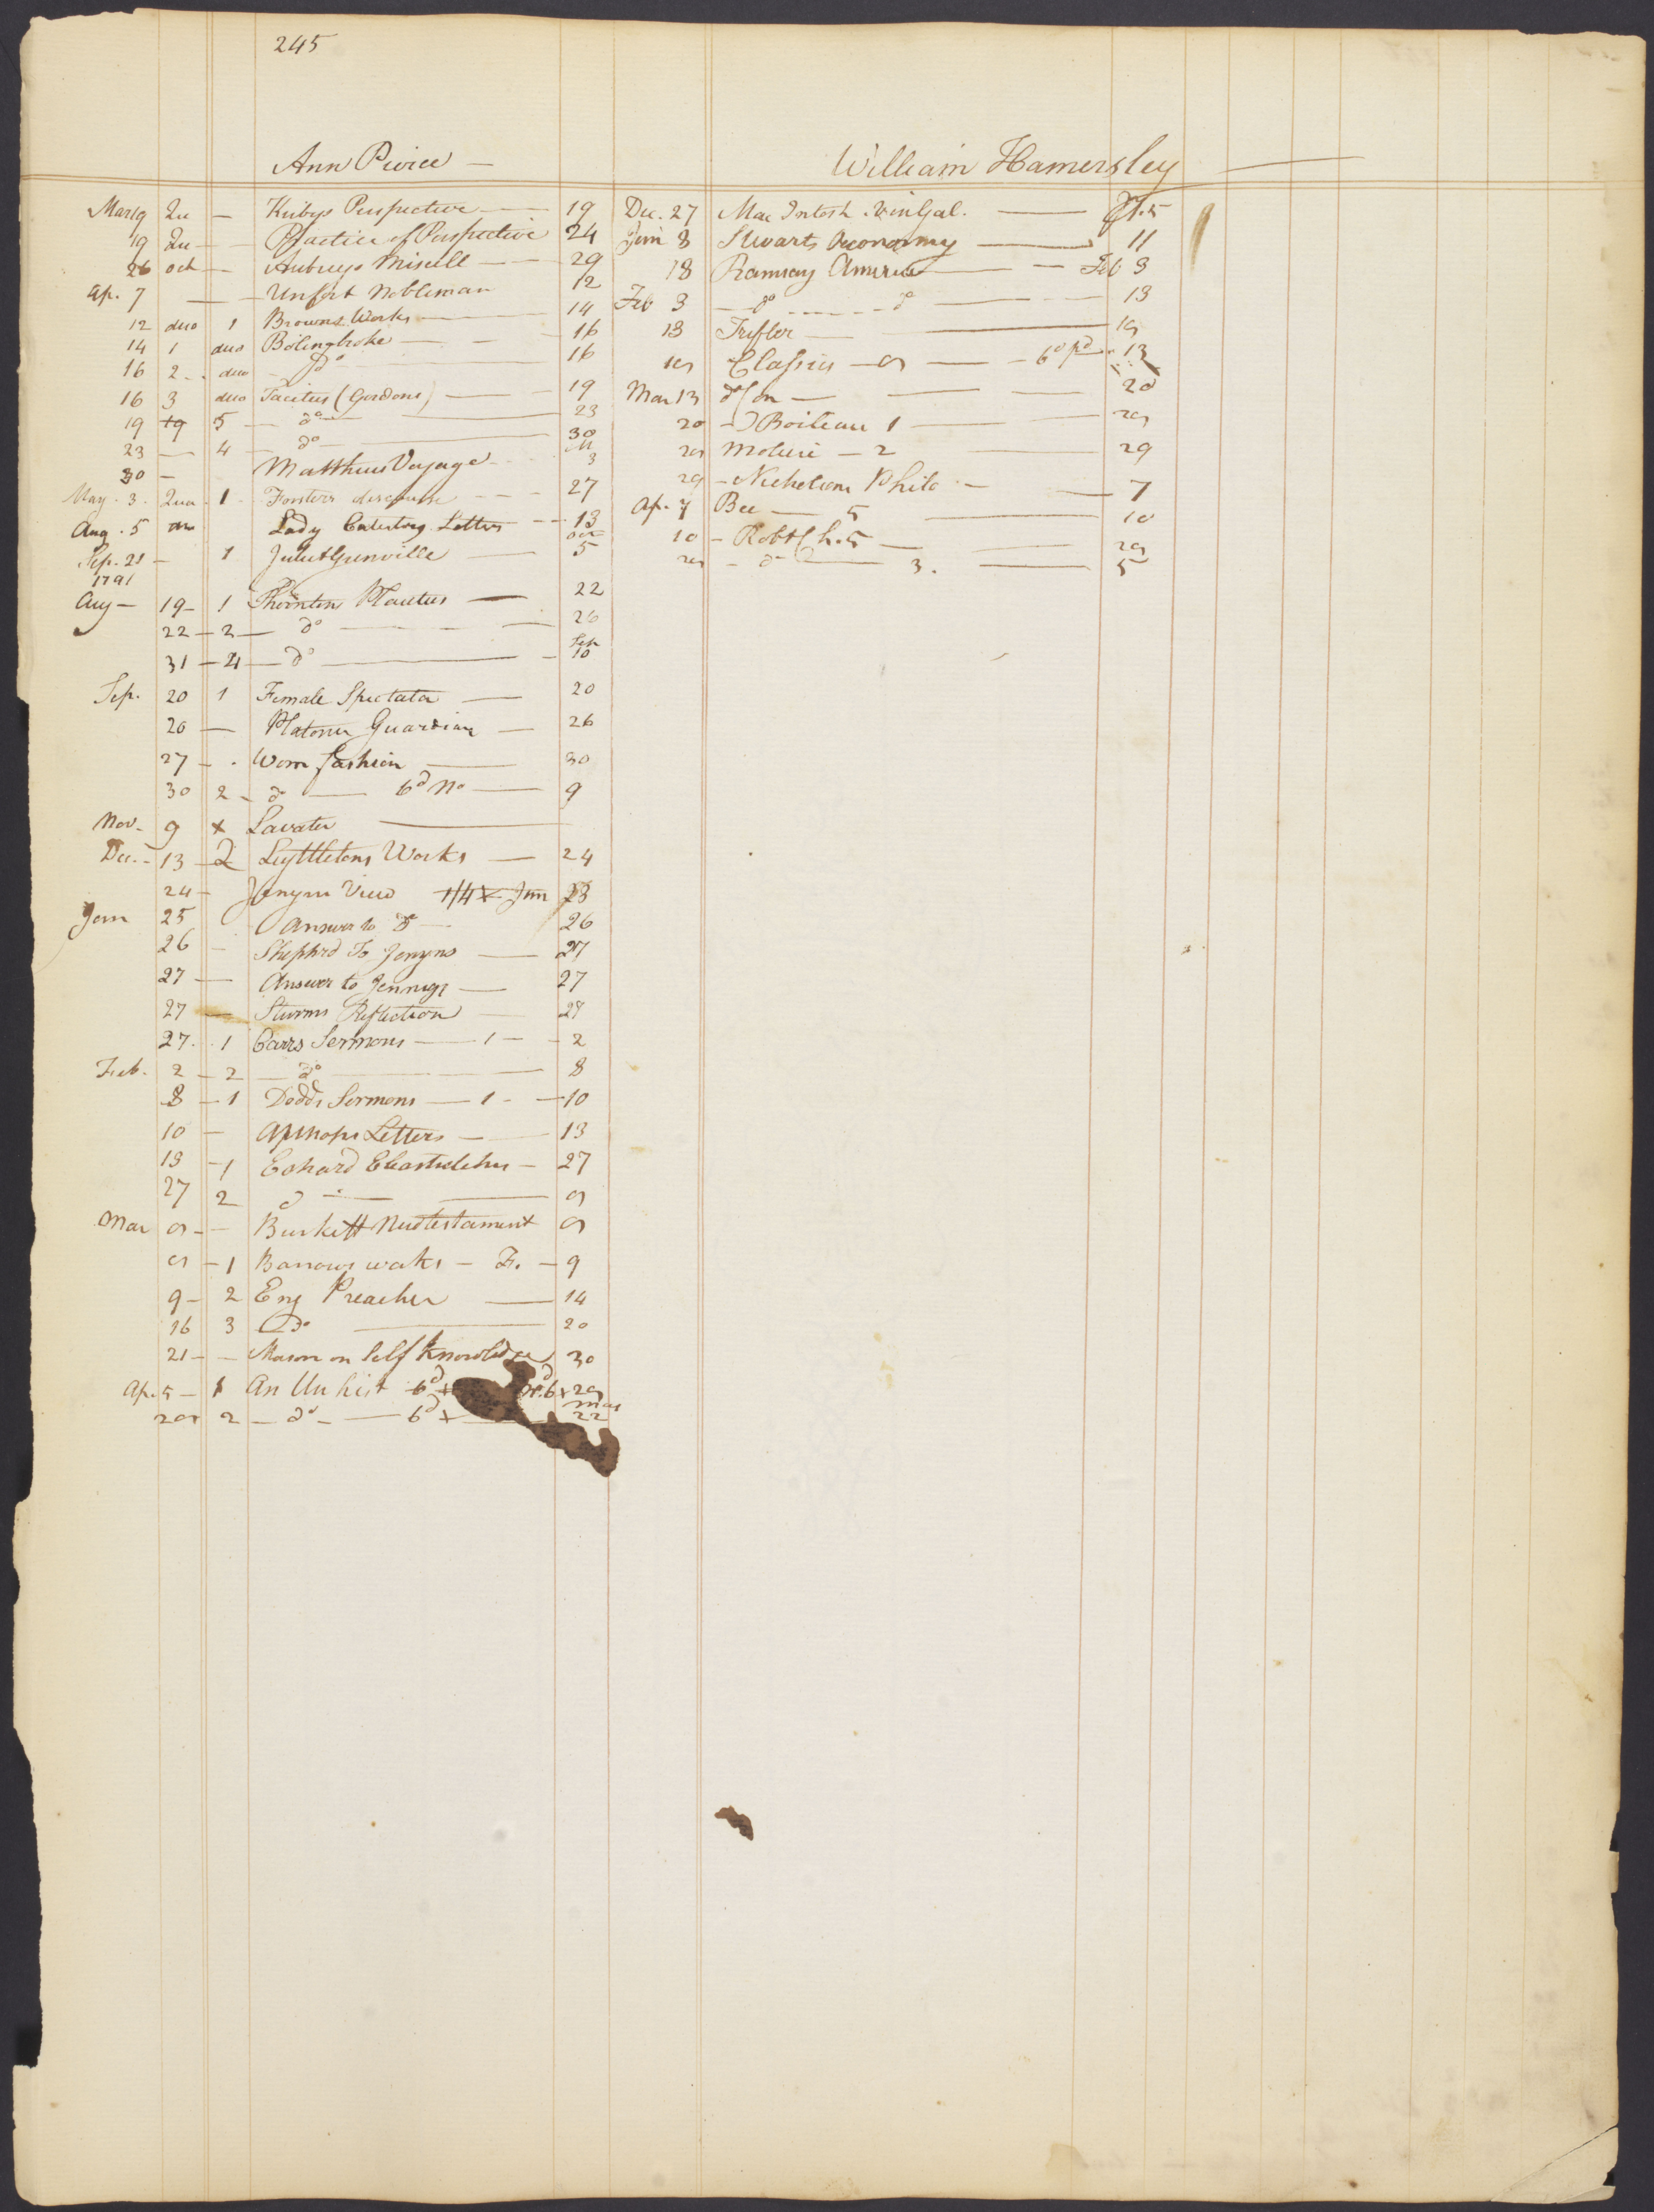 245
Ann Pierce —
Mar 19 Qu — Kirbys Perspective — 19
19 Qu — Practice of Perspective 24
26 oct — Aubreys Miscell — 29
Ap. 7 — Unfort Nobleman 12
12 duo 1 Browns Works — 14
14 1 duo Bolingbroke — 16
16 2 duo — do — 16
16 3 duo Tacitus (Gordons) — 19
19 19 5 — do — 23
23 — 4 — do — 30
30 — Matthews Voyage M 3
May . 3 . Qua . 1 Forsters — 27
Aug . 5 Lady Letters — 13
Sep. 21 — 1 Juliet Grenville — Oct 5
1791
Aug — 19 — 1 Thornton Plautus — 22
22 — 2 — do — 26
31 — 4 — do — Sep 10
Sep. 20 1 Female Spectator — 20
20 — Platonic Guardian — 26
27 — . Wom fashion — 30
30 2 — do — 6d No — 9
Nov — 9 x Lavater —
Dec. — 13 — 2 Lyttletons Works — 24
24 — Jenyns View 1/4 x Jan 23
Jan 25 Answer to do — 26
26 — Shephrd To Jenyns — 27
27 — Answer to Jennygs — 27
27 — Sturms Reflection — 28
27 . . 1 Carrs Sermons — 1 — 2
Feb. 2 — 2 — do — 8
8 — 1 Dodds Sermons — 1 — 10
10 — Apthorps Letters — 13
13 — 1 Echard — 27
27 2 do — 5
Mar 5 — Burkett Newtestament 5
5 — 1 Barrows works — F. — 9
9 — 2 Eng Preacher — 14
16 3 — do — 20
21 — — Mason on Self Knowledge 30
Ap. 5 — 1 An Un hist 6d x 6 x 25
25 2 — do — 6d x — Mar 22
William Hamersley —
Dec. 27 Mac Intosh . Vin Gal. — 5
Jan 8 Stuarts Oeconomy — 11
18 Ramsay America — Feb 3
Feb 3 — do — do — 13
13 Trifler — 15
15 Classics — 5 — 6d pd — 13
Mar 13 — 20
20 — Boileau 1 — 25
25 Moliere — 2 — 29
29 — Nicholson Philo — 7
Ap. 7 Bee — 5 — 10
10 — Robt Ch. 5 — 25
25 — do — 3 . — 5